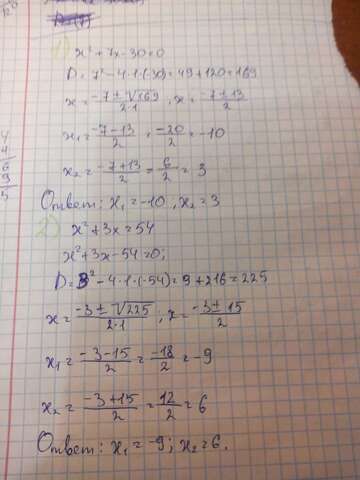 1) x²+7x-30=0
D=7²-4·1·(-30)=49+120=169
x=(-7±√169)/(2·1), x=(-7±13)/2
x₁=(-7-13)/2=(-20)/2=-10
x₂=(-7+13)/2=6/2=3
Ответ: x₁=-10, x₂=3
2) x²+3x=54
x²+3x-54=0;
D=3²-4·1·(-54)=9+216=225
x=(-3±√225)/(2·1); x=(-3±15)/2
x₁=(-3-15)/2=(-18)/2=-9
x₂=(-3+15)/2=12/2=6
Ответ: x₁=-9; x₂=6.